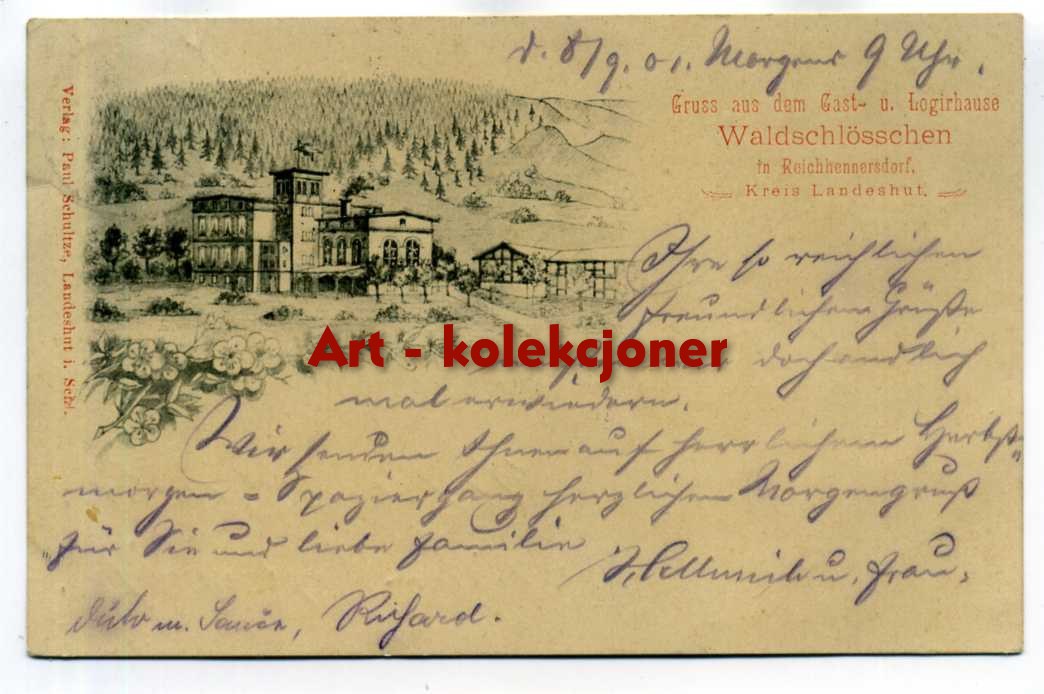 d. 8/9. 01. Morgens 9 Uhr.
Gruss aus dem Gast- u. Logirhause
Waldschlösschen
in Reichhennersdorf,
Kreis Landeshut.
Verlag: Paul Schultze, Landeshut i. Schl.
Ihre so reichlichen
freundlichen Grüße
Art - kolekcjoner
doch endlich
mal erwiedern.
Wir senden Ihnen auf herrlichem Herbst-
morgen = Spaziergang herzlichen Morgengruß
für Sie und liebe Familie
u. Frau.
Richard.